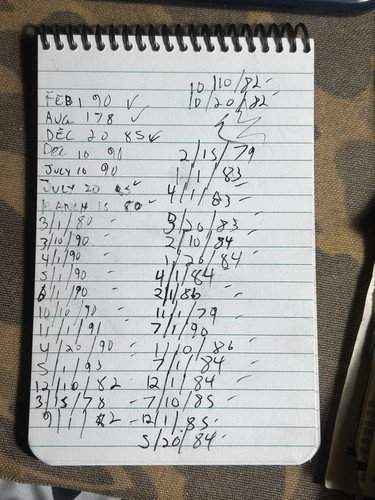 10/10/82 -
FEB 1 90 ✓ 10/20/82 -
AUG 1 78 ✓
DEC 20 85 ✓
DEC 10 90 2/15/79
JULY 10 90 1/1/83
JULY 20 85 ✓ 4/1/83 -
MARCH 15 80 ✓
3/1/80 - 3/20/83 -
3/10/90 - 2/10/84 -
4/1/90 - 1/20/84 -
5/1/90 - 4/1/84
6/1/90 - 2/1/86 -
10/10/90 - 11/1/79
11/1/91 7/1/90
4/20/90 - 1/10/86 -
5/1/93 7/1/84 -
12/10/82 - 12/1/84 -
3/15/78 - 7/10/85 -
9/1/82 - 12/1/85 -
5/20/84 -